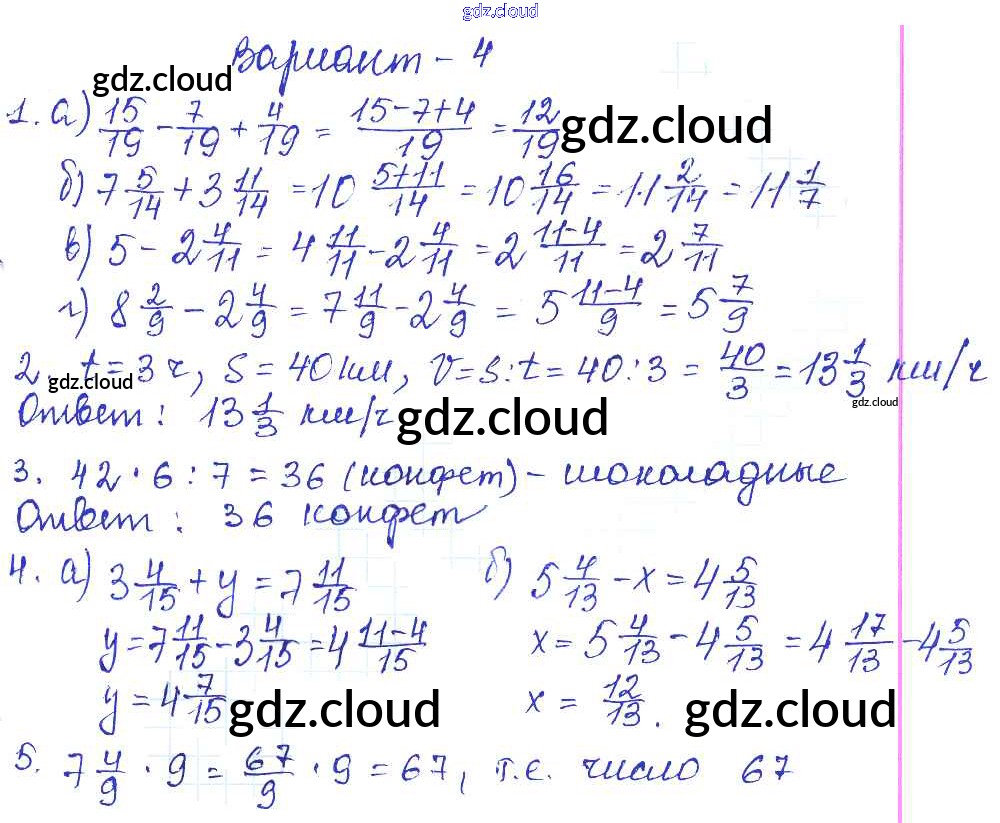 gdz.cloud
Вариант - 4
gdz.cloud
1. а) 15/19 - 7/19 + 4/19 = (15-7+4)/19 = 12/19
gdz.cloud
б) 7 5/14 + 3 11/14 = 10 (5+11)/14 = 10 16/14 = 11 2/14 = 11 1/7
в) 5 - 2 4/11 = 4 11/11 - 2 4/11 = 2 (11-4)/11 = 2 7/11
г) 8 2/9 - 2 4/9 = 7 11/9 - 2 4/9 = 5 (11-4)/9 = 5 7/9
2. t = 3 ч, S = 40 км, V = S : t = 40 : 3 = 40/3 = 13 1/3 км/ч
gdz.cloud
gdz.cloud
Ответ: 13 1/3 км/ч
gdz.cloud
3. 42 · 6 : 7 = 36 (конфет) - шоколадные
Ответ: 36 конфет
4. а) 3 4/15 + y = 7 11/15
y = 7 11/15 - 3 4/15 = 4 (11-4)/15
y = 4 7/15
gdz.cloud
б) 5 4/13 - x = 4 5/13
x = 5 4/13 - 4 5/13 = 4 17/13 - 4 5/13
x = 12/13.
gdz.cloud
5. 7 4/9 · 9 = 67/9 · 9 = 67, т.е. число 67